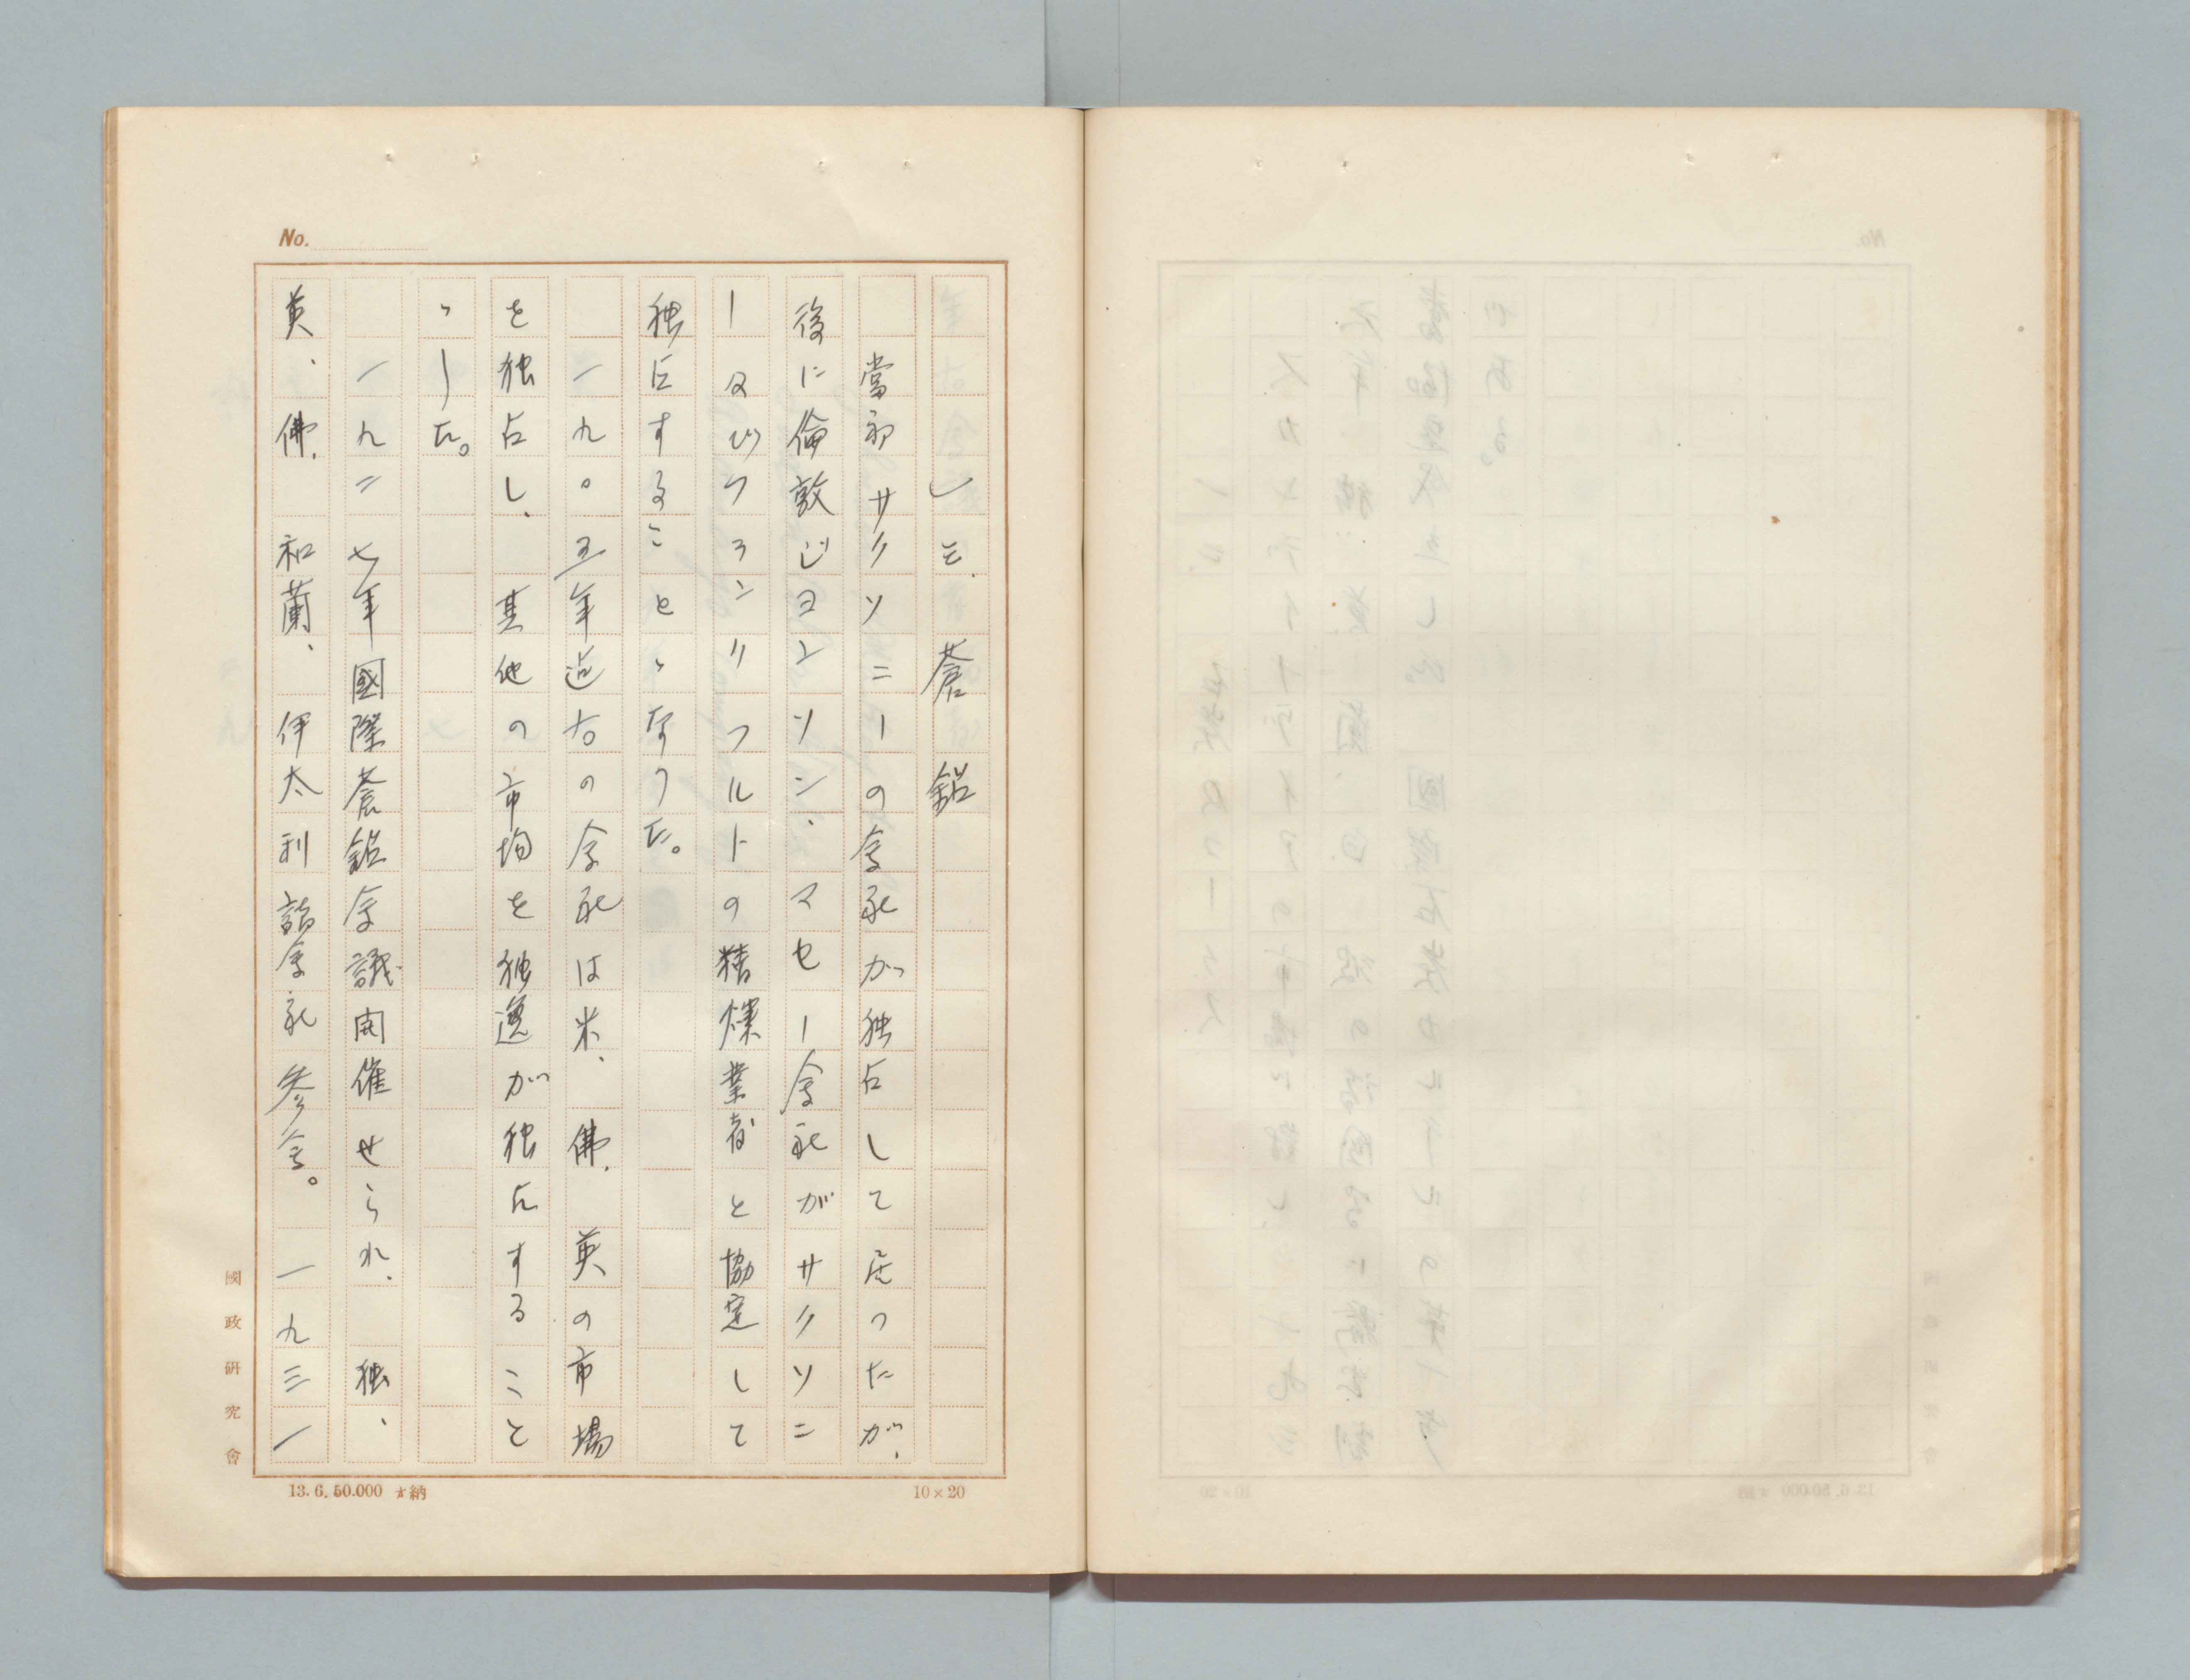 No.
蒼鉛
當初サクソニーの會社が独占して居つたが、
後に倫敦ジヨンソン、マセー會社がサクソニ
ー及びフランクフルトの精煉業者と協定して
独占することゝなつた。
一九〇五年迄右の會社は米、佛、英の市場
を独占し、其他の市場を独逸が独占すること
ゝした。
一九二七年國際蒼鉛會議開催せられ、独、
英、佛、和蘭、伊太利諸會社参会。一九三一
國政研究會
13.6.50.000 納
10×20